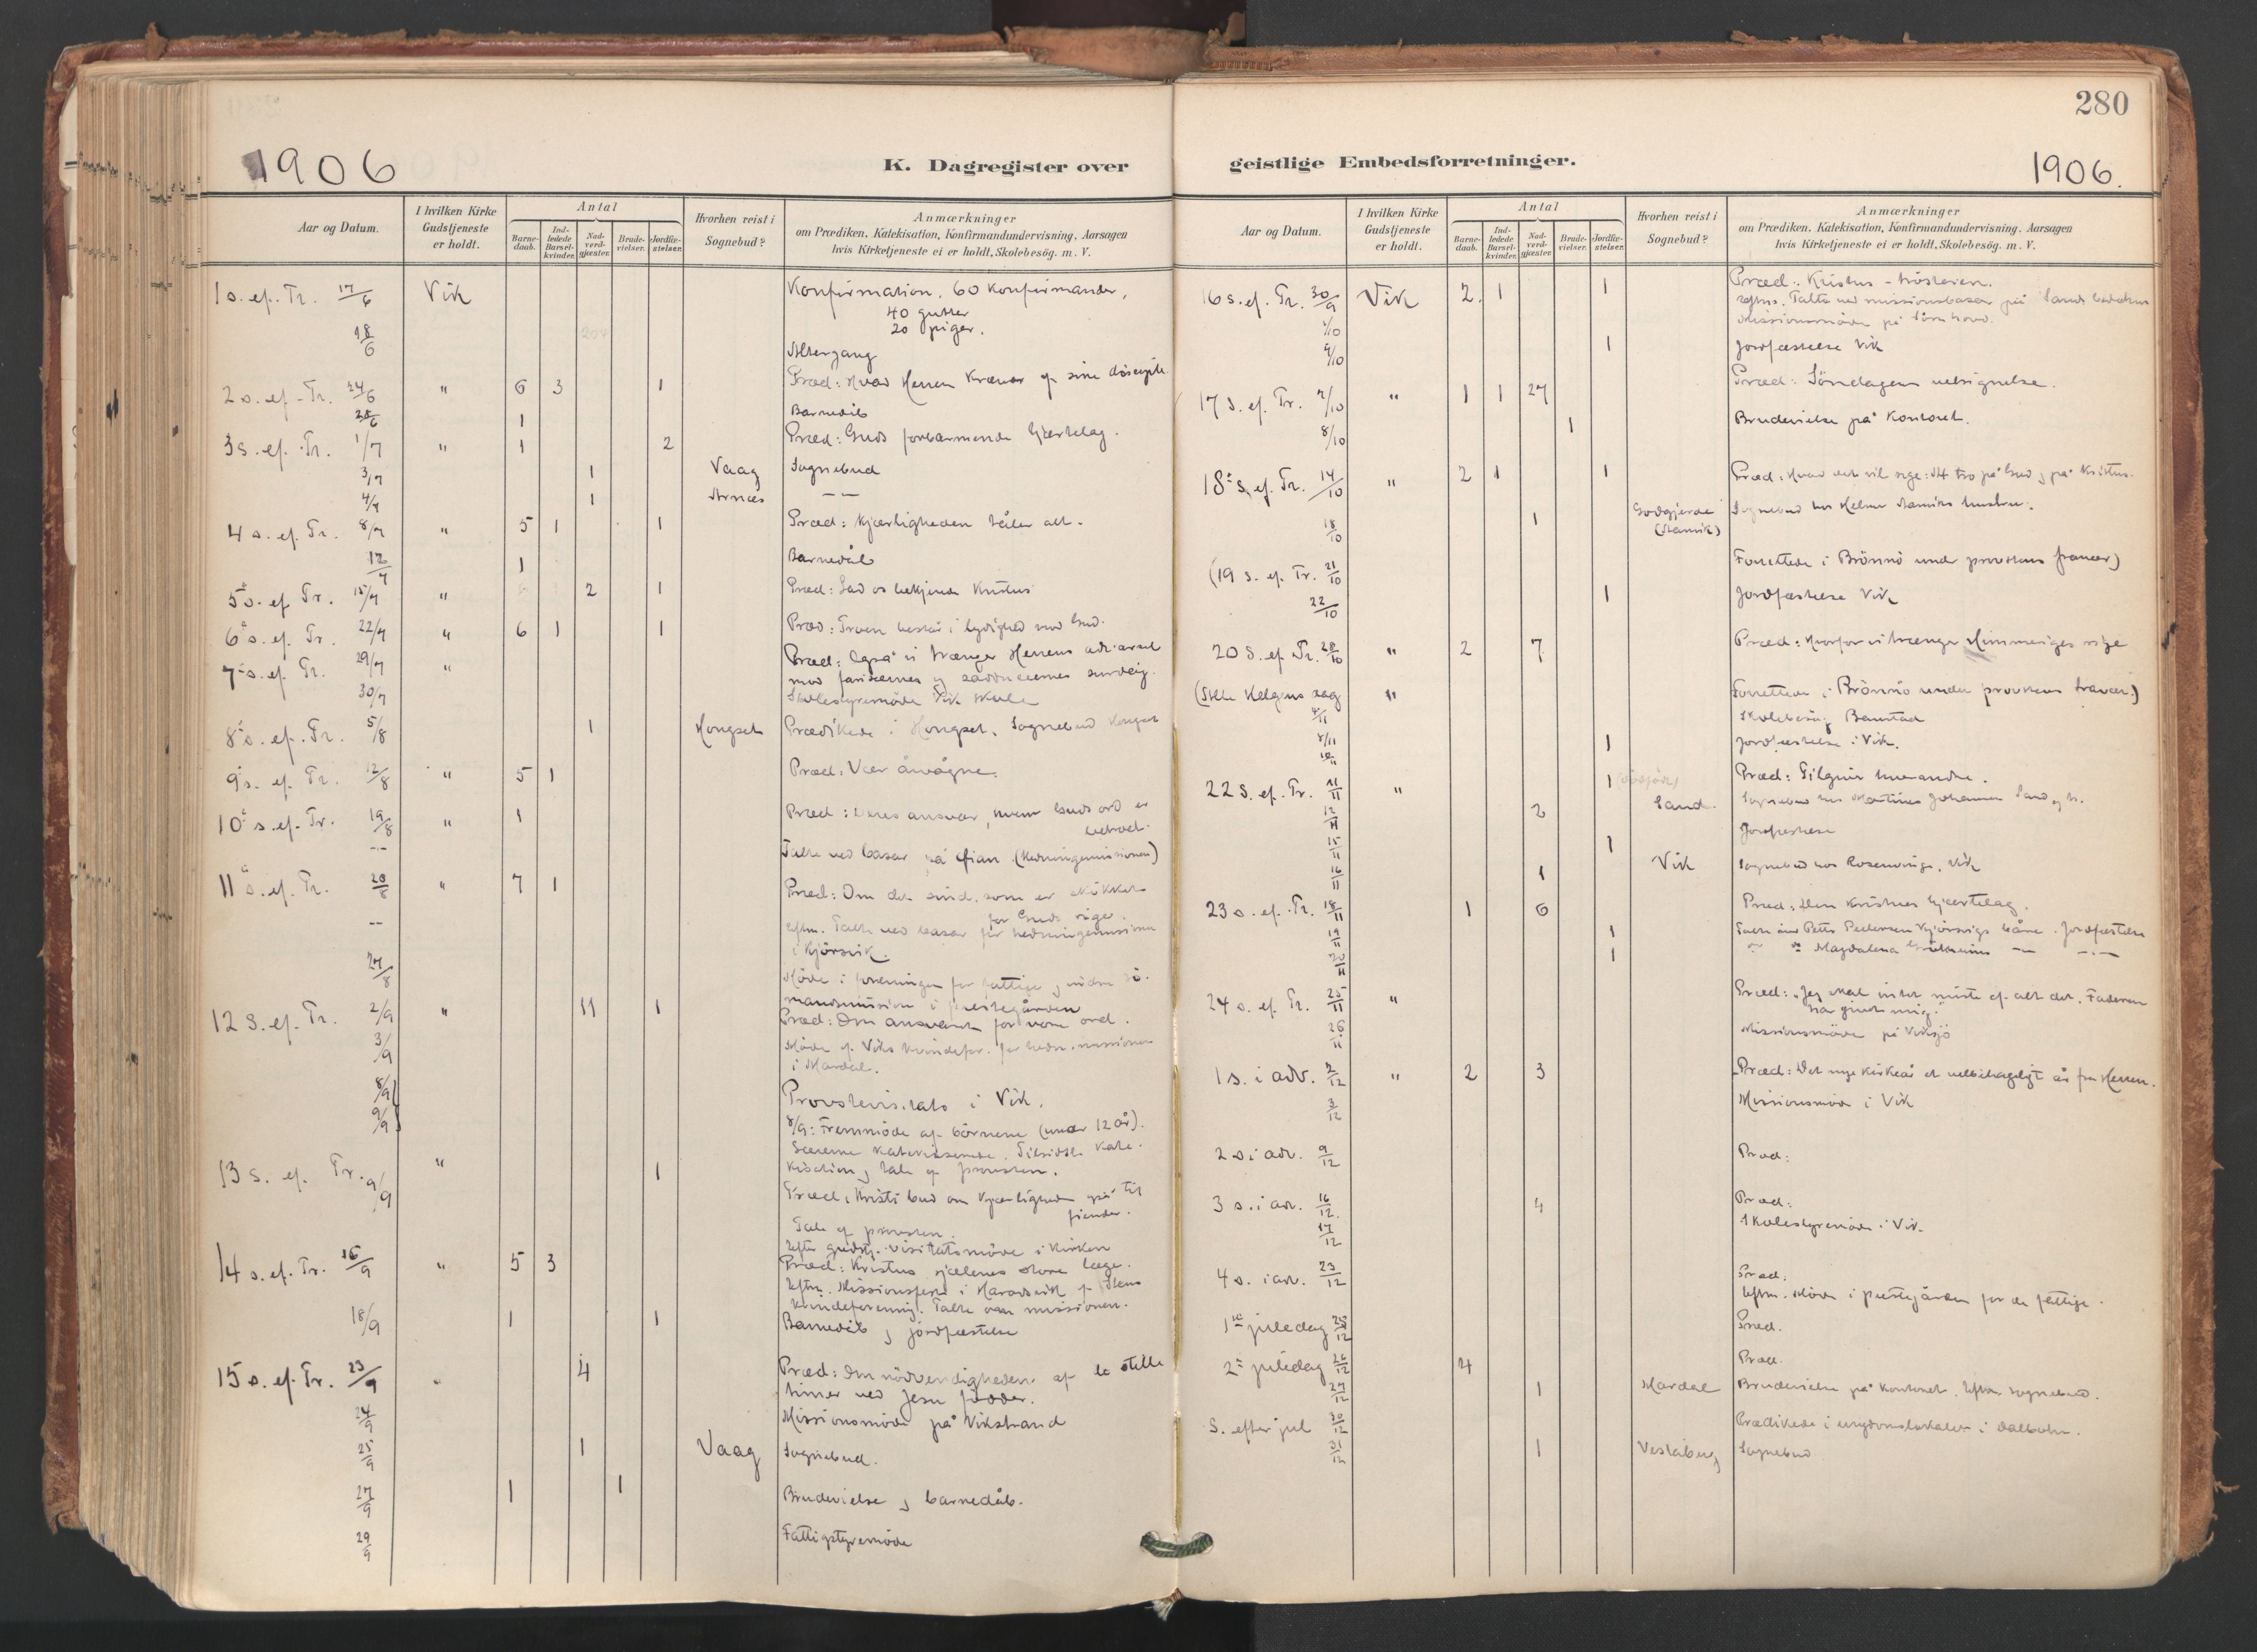 280
1906
K. Dagregister over
geistlige Embedsforretninger.
1906.
Aar og Datum.
I hvilken Kirke Gudstjeneste er holdt.
Antal
Barne-daab.
Ind-ledede Barsel-kvinder.
Nad-verd-gjæster.
Brude-vielser.
Jordfæ-stelser.
Hvorhen reist i Sognebud?
Anmærkninger
om Prædiken, Katekisation, Konfirmandundervisning, Aarsagen
hvis Kirketjeneste ei er holdt, Skolebesög. m. V.
1 s. ef. Tr. 17/6 Vik Konfirmation. 60 Konfirmander,
40 gutter
20 piger.
18/6 Altergang
2 s. ef. Tr. 24/6 " 6 3 1 Præd: Hvad Herren kræver af sine disciple.
1 Barnedåb
3 s. ef. Tr. 1/7 " 1 2 Præd: Guds forbarmende hjertelag.
3/7 1 Vaag Sognebud
4/7 1 Arnæs — —
4 s. ef. Tr. 8/7 " 5 1 1 Præd: Kjærligheden tåler alt.
12/7 1 Barnedåb
5 s. ef. Tr. 15/7 " 2 1 Præd: Lad os bekjende Kristus
6 s. ef. Tr. 22/7 " 6 1 1 Præd: Troen består i lydighed mod Gud.
7 s. ef. Tr. 29/7 " Præd: Også vi trænger Herrens advarsel
mod farisæernes og sadducæernes surdeig.
30/7 Skolestyremöde Vik skole
8 s. ef. Tr. 5/8 1 Hongset Prædikede i Hongset. Sognebud Hongset
9 s. ef. Tr. 12/8 " 5 1 Præd: Vær årvågne.
10 s. ef. Tr. 19/8 " 1 Præd: Deres ansvar, hvem Guds ord er
betroet.
— Talte ved basar på (Hedningemissionen)
11 s. ef. Tr. " 7 1 Præd: Om det sind, som er skikket
for Guds rige.
— Eftm. Talte ved basar for hedningemissionen
i Kjörsvik.
27/8 Möde i foreningen for fattige og indre sö-
mandsmission i prestegården
12 s. ef. Tr. 2/9 " 11 1 Præd: Om ansvaret for vore ord.
3/9 Möde af Viks kvindefor. for hedn. missionen
i Mardal.
8/9
9/9 Provstevisitats i Vik.
8/9: Fremmöde af börnene (under 12 år).
Lærerne katekiserede. Tilsidst kate-
kisation og tale af provsten.
13 s. ef. Tr. 9/9 " 1
Præd: Kristi bud om kjærligheden også til
fiender.
Tale af provsten.
Efter gudstj. visitatsmöde i kirken
14 s. ef. Tr. 16/9 " 5 3 Præd: Kristus sjælenes store læge.
Eftm. Missionsfest i Haradsvik af Stens
kvindeforening. Talte om missionen.
18/9 1 1 Barnedåb og jordfæstelse
15 s. ef. Tr. 23/9 " 4 Præd: Om nödvendigheden af de stille
timer ved Jesu födder.
24/9 Missionsmöde på Vikstrand
25/9 1 Vaag Sognebud.
27/9 1 1 Brudevielse og barnedåb.
29/9 Fattigstyremöde
Aar og Datum.
I hvilken Kirke Gudstjeneste er holdt.
Antal
Barne-daab.
Ind-ledede Barsel-kvinder.
Nad-verd-gjæster.
Brude-vielser.
Jordfæ-stelser.
Hvorhen reist i Sognebud?
Anmærkninger
om Prædiken, Katekisation, Konfirmandundervisning. Aarsagen
hvis Kirketjeneste ei er holdt, Skolebesög. m. V.
16 s. ef. Tr. 30/9 Vik 2 1 1 Præd: Kristus - trösteren.
Eftm. Talte ved missionsbasar på Sands bedehus
1/10 Missionsmöde på
4/10 1 Jordfæstelse Vik
17 s. ef. Tr. 7/10 " 1 1 27 Præd: Söndagens velsignelse.
8/10 1 Brudevielse på kontoret.
18 s. ef. Tr. 14/10 " 2 1 1 Præd: Hvad det vil sige: At tro på Gud og på Kristus.
18/10 1 Godgjerde (Stamvik) Sognebud hos Helmer Stamviks hustru.
(19 s. ef. Tr. 21/10 Forrettede i Brönnö under provstens fravær)
22/10 1 Jordfæstelse Vik
20 s. ef. Tr. 28/10 " 2 7 Præd: Hvorfor vi trænger Himmeriges rige
(Alle Helgens dag 4/11 " Forrettede i Brönnö under provstens fravær.)
Skolebesög Baustad
8/11 1 Jordfæstelse i Vik.
22 s. ef. Tr. 11/11 " 1 Præd: Tilgiv hverandre.
12/11 2 Sand. Sognebud hos Martinus Johansen Sand og h.
15/11 1 Jordfæstelse
16/11 1 Vik Sognebud hos Rosenvinge, Vik
23 s. ef. Tr. 18/11 1 6 Præd: Den kristnes hjertelag.
19/11 1 Talte ved Petter Pedersen Kjörsvigs båre. Jordfæstelse
20/11 1 — " Magdalena — —.—
24 s. ef. Tr. 25/11 " Præd: "Jeg skal intet miste af alt det, Faderen
har givet mig."
26/11 Missionsmöde på Viksjö
1 s. i adv. 2/12 " 2 3 Præd: Det nye kirkeår et velbehageligt år fra Herren.
3/12 Missionsmöde i Vik
2 s. i adv. 9/12 Præd:
3 s. i adv. 16/12 4 Præd:
17/12 Skolestyremöde i Vik.
4 s. i adv. 23/12 Præd:
Eftm. Möde i prestegården for de fattige.
1ste juledag 25/12 Præd.
2. juledag 26/12 4 Præd.
27/12 1 Mardal Brudevielse på kontoret. Efter sognebud.
S. efter jul 30/12 Prædikede i ungdomslokalet i Dalbotn.
31/12 1 Vestaberg Sognebud